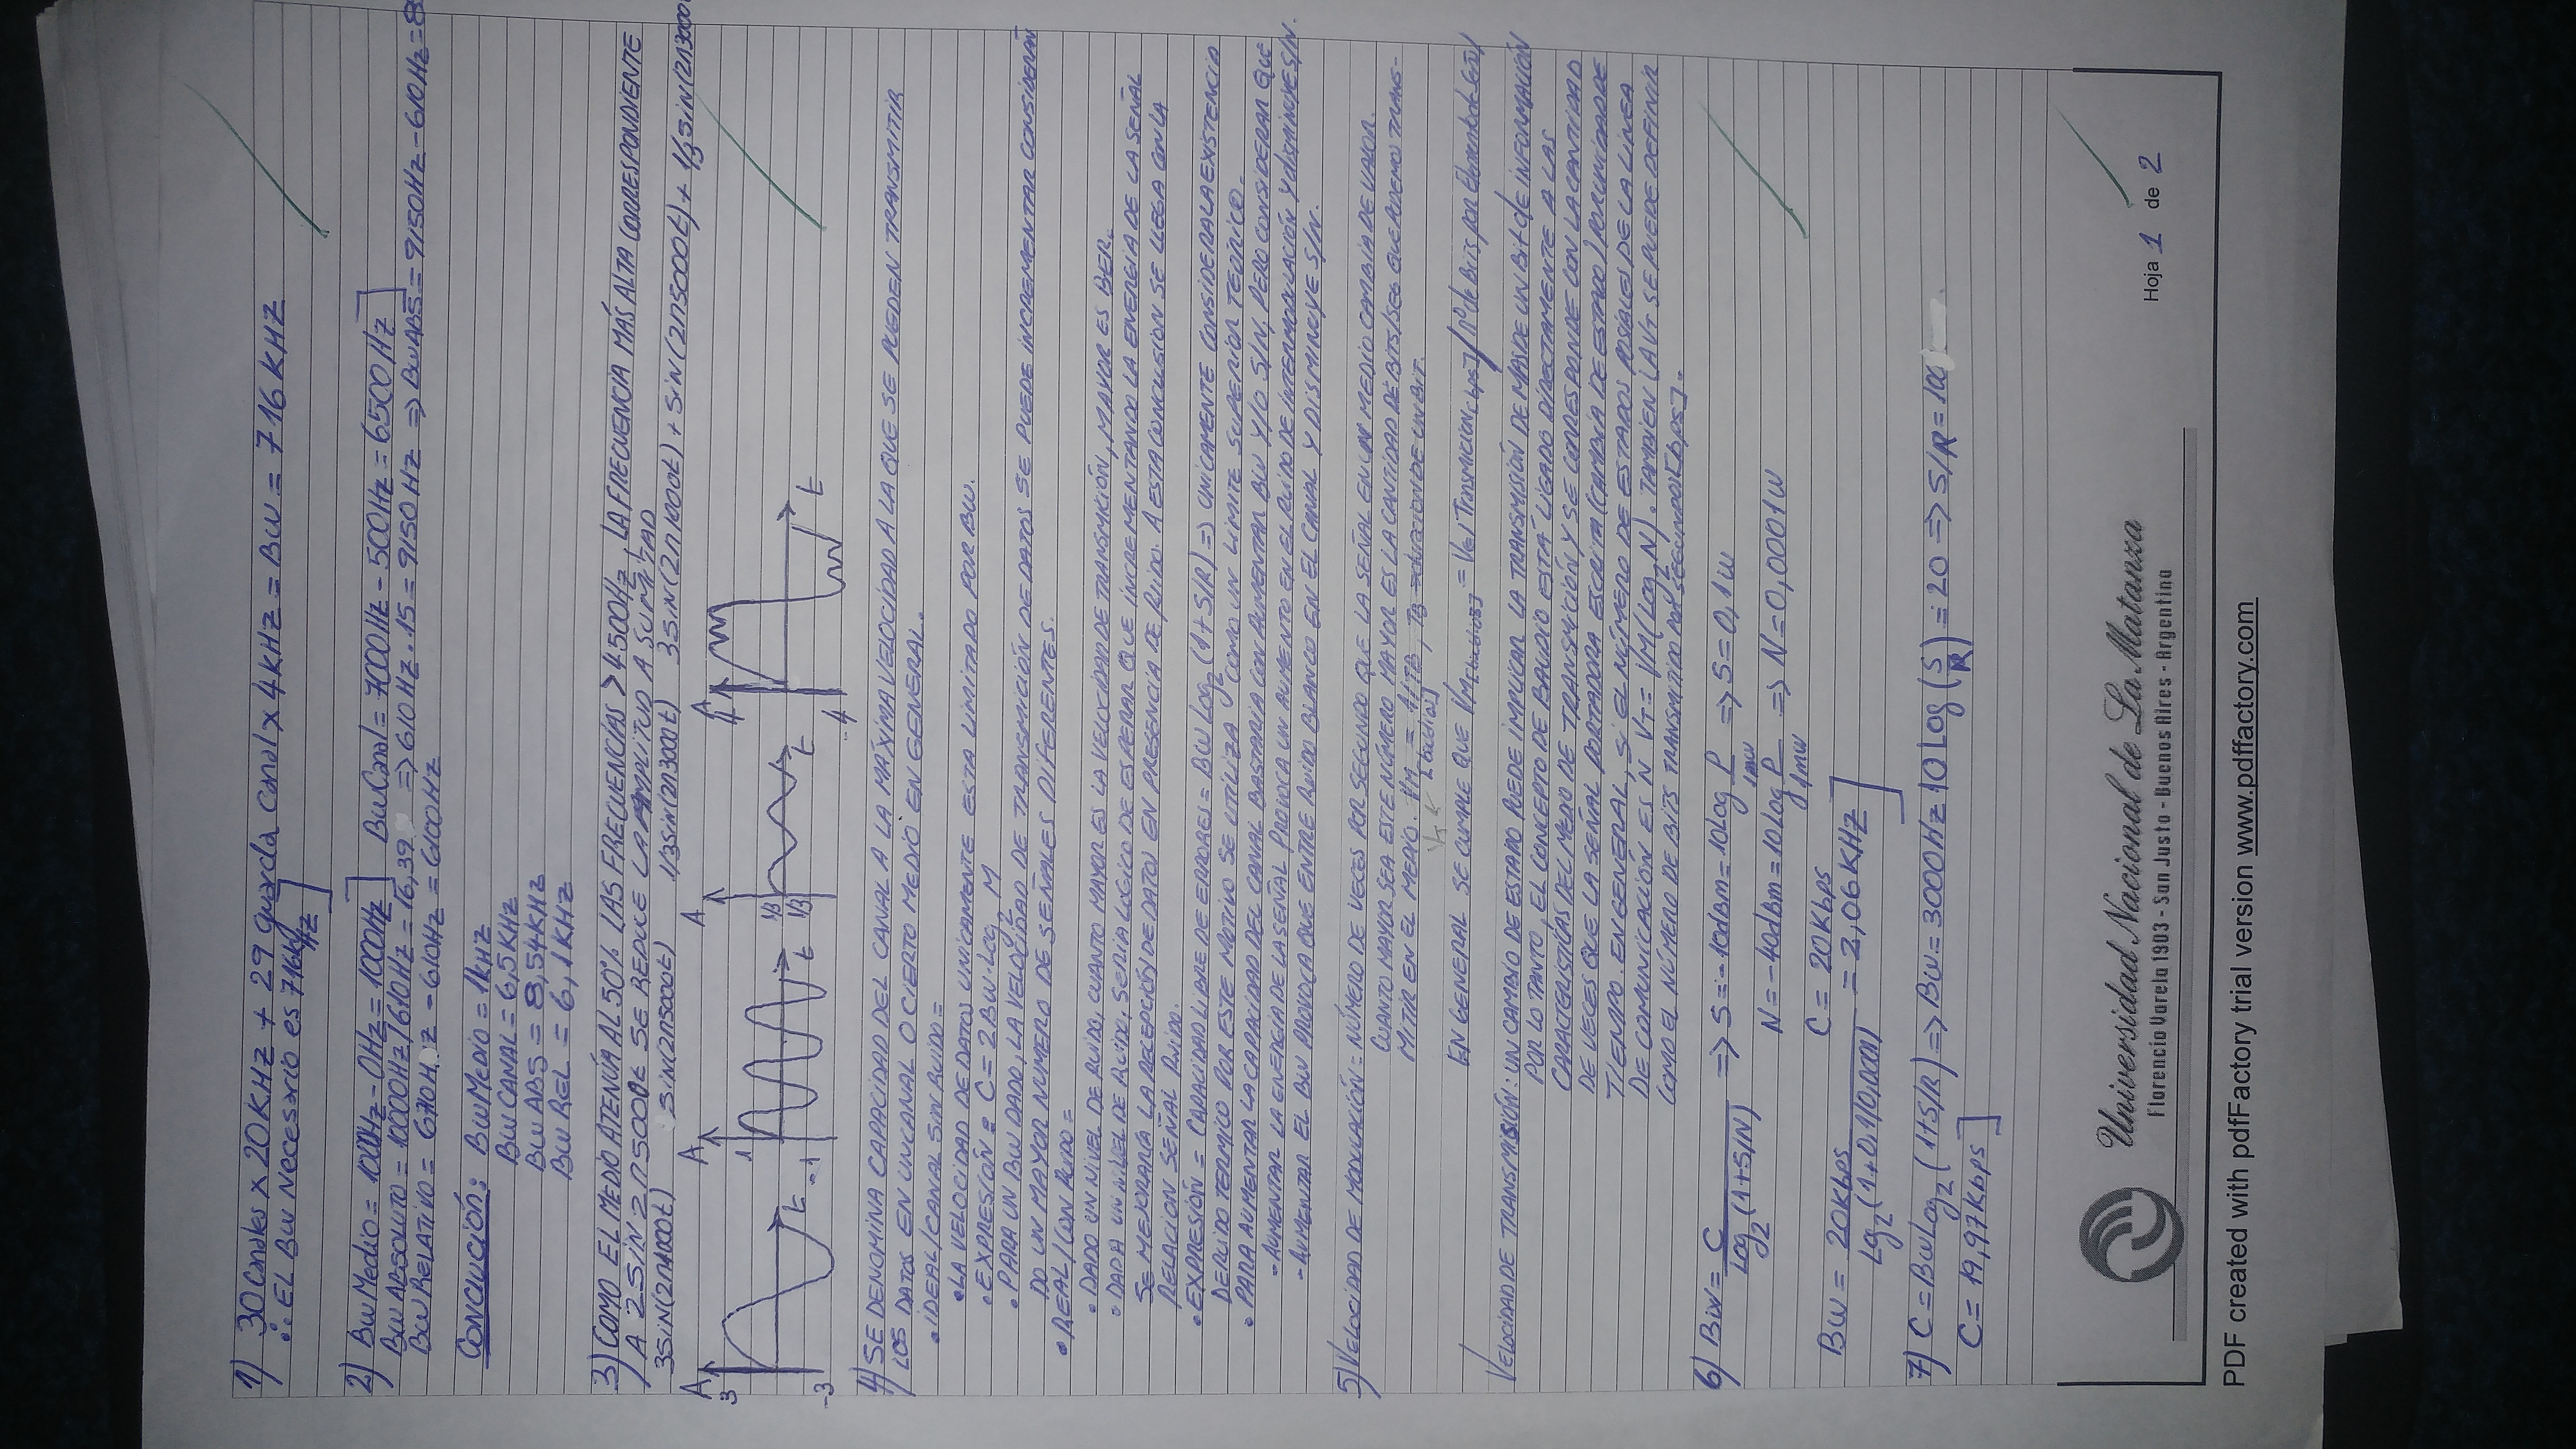 1) 30 Canales x 20KHZ + 29 guarda canal x 4KHZ = BW = 716 KHZ
∴ EL BW Necesario es 716KHZ]
2) BW Medio = 1000HZ - 0HZ = 1000HZ] BW Canal = 7000HZ - 500HZ = 6500HZ]
BW ABSOLUTO = 10000HZ/610HZ = 16,39 => 610HZ . 15 = 9150HZ => BW ABS = 9150HZ - 610HZ = 8
BW RELATIVO = 6710HZ - 610HZ = 6100HZ
CONCLUCIÓN: BW MEDIO = 1KHZ
BW CANAL = 6,5KHZ
BW ABS = 8,54KHZ
BW REL = 6,1KHZ
3) COMO EL MEDIO ATENÚA AL 50% LAS FRECUENCIAS > 4500HZ, LA FRECUENCIA MÁS ALTA CORRESPONDIENTE
A 2SIN2π5000t SE REDUCE LA AMPLITUD A SU MITAD
3SIN(2π1000t) SIN(2π5000t) 1/3SIN(2π3000t) 3SIN(2π1000t) + SIN(2π5000t) + 1/3SIN(2π3000
A A A A
3 1 1/3 4
t t 1/3 t t
-3 -1 -4
4) SE DENOMINA CAPACIDAD DEL CANAL A LA MÁXIMA VELOCIDAD A LA QUE SE PUEDEN TRANSMITIR
LOS DATOS EN UN CANAL O CIERTO MEDIO EN GENERAL.
• IDEAL/CANAL SIN RUIDO =
• LA VELOCIDAD DE DATOS UNICAMENTE ESTA LIMITADO POR BW.
• EXPRESIÓN = C = 2BW.Log2 M
• PARA UN BW DADO, LA VELOCIDAD DE TRANSMICIÓN DE DATOS SE PUEDE INCREMENTAR CONSIDERAN
DO UN MAYOR NUMERO DE SEÑALES DIFERENTES.
• REAL/CON RUIDO =
• DADO UN NIVEL DE RUIDO, CUANTO MAYOR ES LA VELOCIDAD DE TRANSMICIÓN, MAYOR ES BER.
• DADA UN NIVEL DE RUIDO, SERIA LOGICO DE ESPERAR QUE INCREMENTANDO LA ENERGIA DE LA SEÑAL
SE MEJORARÍA LA RECEPCIÓN DE DATOS EN PRESENCIA DE RUIDO. A ESTA CONCLUSION SE LLEGA CON LA
RELACION SEÑAL RUIDO.
• EXPRESIÓN = CAPACIDAD LIBRE DE ERRORES = BW Log2 (1+S/R) => UNICAMENTE CONSIDERA LA EXISTENCIA
DE RUIDO TERMICO POR ESTE MOTIVO SE UTILIZA COMO UN LIMITE SUPERIOR TEÓRICO.
• PARA AUMENTAR LA CAPACIDAD DEL CANAL BASTARIA CON AUMENTAR BW Y/O S/N, PERO CONSIDERAR QUE
- AUMENTAR LA ENERGIA DE LA SEÑAL PROVOCA UN AUMENTO EN EL RUIDO DE INTERMODULACIÓN Y DISMINUYE S/N.
- AUMENTAR EL BW PROVOCA QUE ENTRE RUIDO BLANCO EN EL CANAL Y DISMINUYE S/N.
5) VELOCIDAD DE MODULACIÓN = NÚMERO DE VECES POR SEGUNDO QUE LA SEÑAL EN UN MEDIO CAMBIA DE VALOR.
CUANTO MAYOR SEA ESTE NÚMERO MAYOR ES LA CANTIDAD DE BITS/SEG QUE PODEMOS TRANS-
MITIR EN EL MEDIO. VM = 1/TB, TB = DURACION DE UN BIT.
VT ← [baudios]
EN GENERAL SE CUMPLE QUE VM[baudios] = Vel Transmicion[bps] / nº de Bits por Elemento de Señal
VELOCIDAD DE TRANSMISIÓN: UN CAMBIO DE ESTADO PUEDE IMPLICAR LA TRANSMISIÓN DE MAS DE UN Bit de INFORMACIÓN
POR LO TANTO, EL CONCEPTO DE BAUDIO ESTÁ LIGADO DIRECTAMENTE A LAS
CARACTERISTICAS DEL MEDIO DE TRANSMICIÓN Y SE CORRESPONDE CON LA CANTIDAD
DE VECES QUE LA SEÑAL PORTADORA ESCRITA (CAMBIA DE ESTADO) POR UNIDAD DE
TIEMPO. EN GENERAL, SI EL NÚMERO DE ESTADOS POSIBLES DE LA LÍNEA
DE COMUNICACIÓN ES N VT = VM(Log2 N). TAMBIEN LA VT SE PUEDE DEFINIR
COMO EL NÚMERO DE BITS TRANSMITIDO POR SEGUNDOS[bps].
6) BW = C / Log2 (1+S/N) => S = -10dBm = 10Log P/1mw => S = 0,1w
N = -40dBm = 10Log P/1mw => N = 0,0001w
C = 20Kbps
BW = 20Kbps / Lg2 (1+0,1/0,0001) = 2,06KHZ]
7) C = BW Log2 (1+S/R) => BW = 3000HZ 10 Log (S/R) = 20 => S/R = 100
C = 19,97Kbps]
Universidad Nacional de La Matanza
Florencio Varela 1903 - San Justo - Buenos Aires - Argentina
Hoja 1 de 2
PDF created with pdfFactory trial version www.pdffactory.com